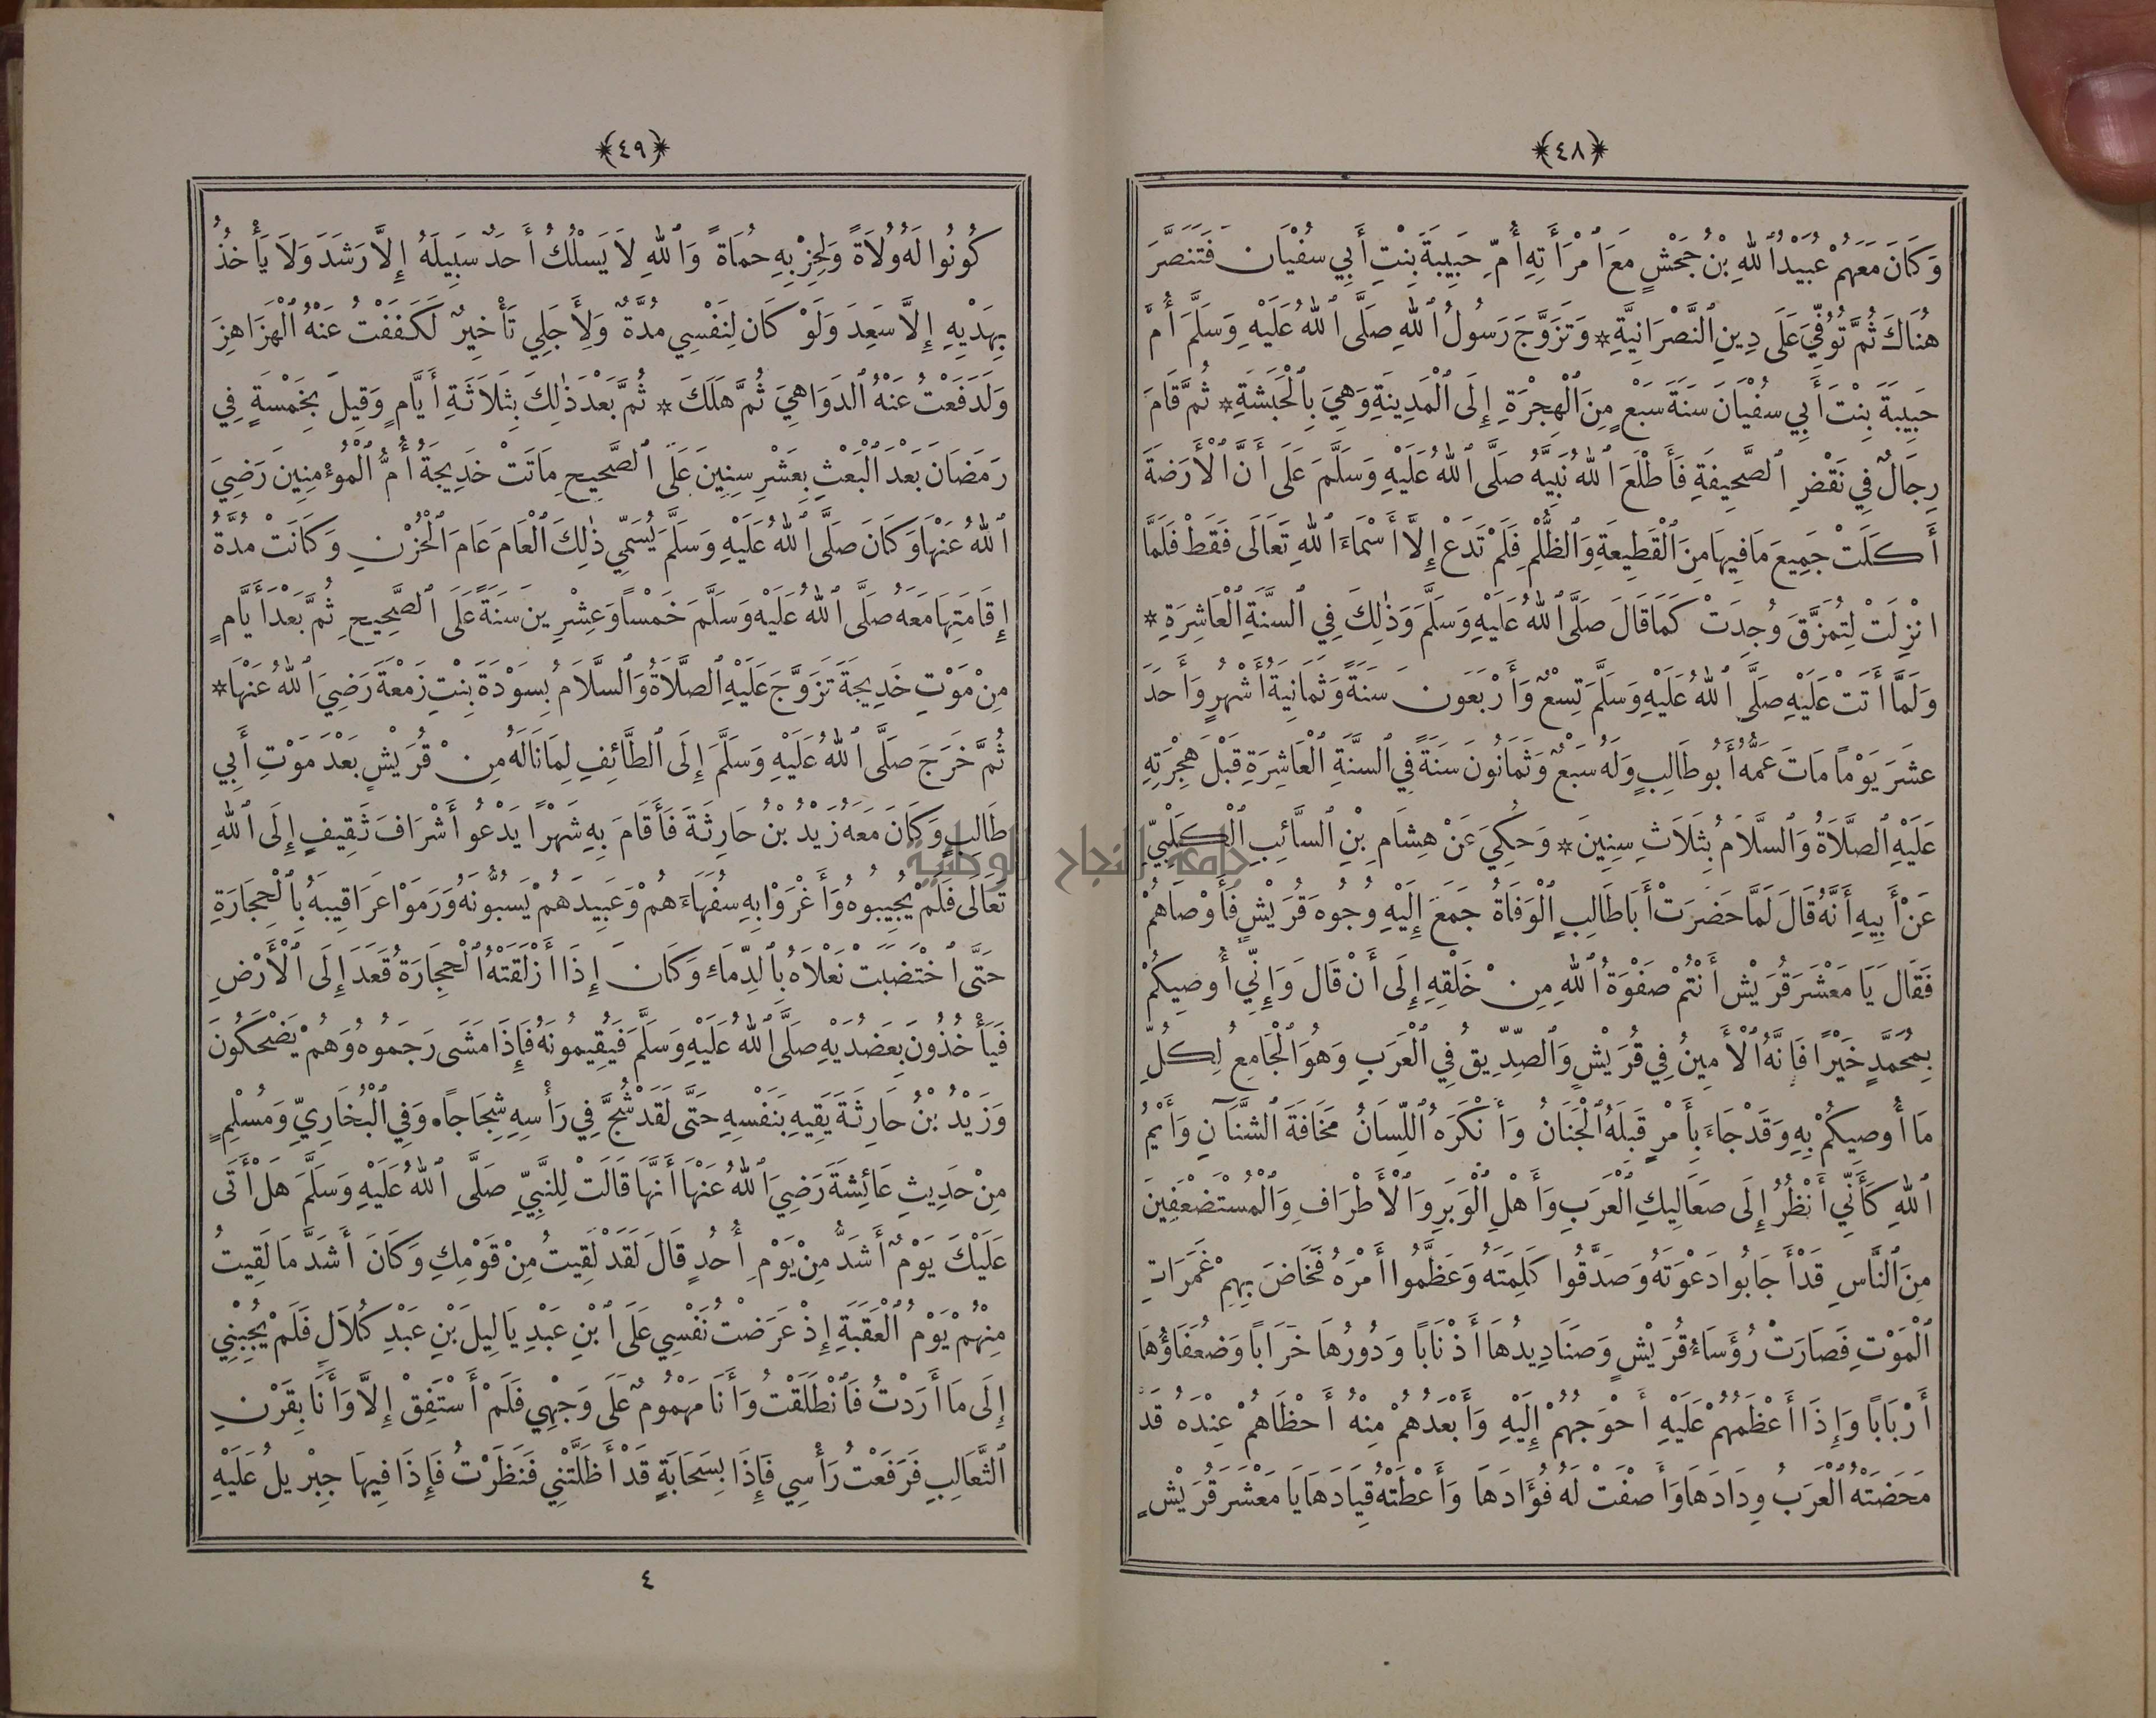 ﴿٤٨﴾
وَكَانَ مَعَهُمْ عُبَيْدُ ٱللهِ بْنُ جَحْشٍ مَعَ ٱمْرَأَتِهِ أُمِّ حَبِيبَةَ بِنْتِ أَبِي سُفْيَانَ فَتَنَصَّرَ
هُنَاكَ ثُمَّ تُوُفِّيَ عَلَى دِينِ ٱلنَّصْرَانِيَّةِ * وَتَزَوَّجَ رَسُولُ ٱللهِ صَلَّى ٱللهُ عَلَيْهِ وَسَلَّمَ أُمَّ
حَبِيبَةَ بِنْتَ أَبِي سُفْيَانَ سَنَةَ سَبْعٍ مِنَ ٱلْهِجْرَةِ إِلَى ٱلْمَدِينَةِ وَهِيَ بِٱلْحَبَشَةِ * ثُمَّ قَامَ
رِجَالٌ فِي نَقْضِ ٱلصَّحِيفَةِ فَأَطْلَعَ ٱللهُ نَبِيَّهُ صَلَّى ٱللهُ عَلَيْهِ وَسَلَّمَ عَلَى أَنَّ ٱلْأَرَضَةَ
أَكَلَتْ جَمِيعَ مَا فِيهَا مِنَ ٱلْقَطِيعَةِ وَٱلظُّلْمِ فَلَمْ تَدَعْ إِلَّا أَسْمَاءَ ٱللهِ تَعَالَى فَقَطْ فَلَمَّا
انْزِلَتْ لِتُمَزَّقَ وُجِدَتْ كَمَا قَالَ صَلَّى ٱللهُ عَلَيْهِ وَسَلَّمَ وَذٰلِكَ فِي ٱلسَّنَةِ ٱلْعَاشِرَةِ *
وَلَمَّا أَتَتْ عَلَيْهِ صَلَّى ٱللهُ عَلَيْهِ وَسَلَّمَ تِسْعٌ وَأَرْبَعُونَ سَنَةً وَثَمَانِيَةُ أَشْهُرٍ وَأَحَدَ
عَشَرَ يَوْمًا مَاتَ عَمُّهُ أَبُو طَالِبٍ وَلَهُ سَبْعٌ وَثَمَانُونَ سَنَةً فِي ٱلسَّنَةِ ٱلْعَاشِرَةِ قَبْلَ هِجْرَتِهِ
عَلَيْهِ ٱلصَّلَاةُ وَٱلسَّلَامُ بِثَلَاثِ سِنِينَ * وَحُكِيَ عَنْ هِشَامِ بْنِ ٱلسَّائِبِ ٱلْكَلْبِيِّ
عَنْ أَبِيهِ أَنَّهُ قَالَ لَمَّا حَضَرَتْ أَبَا طَالِبٍ ٱلْوَفَاةُ جَمَعَ إِلَيْهِ وُجُوهَ قُرَيْشٍ فَأَوْصَاهُمْ
فَقَالَ يَا مَعْشَرَ قُرَيْشٍ أَنْتُمْ صَفْوَةُ ٱللهِ مِنْ خَلْقِهِ إِلَى أَنْ قَالَ وَإِنِّي أُوصِيكُمْ
بِمُحَمَّدٍ خَيْرًا فَإِنَّهُ ٱلْأَمِينُ فِي قُرَيْشٍ وَٱلصِّدِّيقُ فِي ٱلْعَرَبِ وَهُوَ ٱلْجَامِعُ لِكُلِّ
مَا أُوصِيكُمْ بِهِ وَقَدْ جَاءَ بِأَمْرٍ قَبِلَهُ ٱلْجَنَانُ وَأَنْكَرَهُ ٱللِّسَانُ مَخَافَةَ ٱلشَّنَآنِ وَأَيْمُ
ٱللهِ كَأَنِّي أَنْظُرُ إِلَى صَعَالِيكِ ٱلْعَرَبِ وَأَهْلِ ٱلْوَبَرِ وَٱلْأَطْرَافِ وَٱلْمُسْتَضْعَفِينَ
مِنَ ٱلنَّاسِ قَدْ أَجَابُوا دَعْوَتَهُ وَصَدَّقُوا كَلِمَتَهُ وَعَظَّمُوا أَمْرَهُ فَخَاضَ بِهِمْ غَمَرَاتِ
ٱلْمَوْتِ فَصَارَتْ رُؤَسَاءُ قُرَيْشٍ وَصَنَادِيدُهَا أَذْنَابًا وَدُورُهَا خَرَابًا وَضُعَفَاؤُهَا
أَرْبَابًا وَإِذَا أَعْظَمُهُمْ عَلَيْهِ أَحْوَجُهُمْ إِلَيْهِ وَأَبْعَدُهُمْ مِنْهُ أَحْظَاهُمْ عِنْدَهُ قَدْ
مَحَضَتْهُ ٱلْعَرَبُ وِدَادَهَا وَأَصْفَتْ لَهُ فُؤَادَهَا وَأَعْطَتْهُ قِيَادَهَا يَا مَعْشَرَ قُرَيْشٍ
﴿٤٩﴾
كُونُوا لَهُ وُلَاةً وَلِحِزْبِهِ حُمَاةً وَٱللهِ لَا يَسْلُكُ أَحَدٌ سَبِيلَهُ إِلَّا رَشَدَ وَلَا يَأْخُذُ
بِهَدْيِهِ إِلَّا سَعِدَ وَلَوْ كَانَ لِنَفْسِي مُدَّةٌ وَلِأَجَلِي تَأْخِيرٌ لَكَفَفْتُ عَنْهُ ٱلْهَزَاهِزَ
وَلَدَفَعْتُ عَنْهُ ٱلدَوَاهِيَ ثُمَّ هَلَكَ * ثُمَّ بَعْدَ ذٰلِكَ بِثَلَاثَةِ أَيَّامٍ وَقِيلَ بِخَمْسَةٍ فِي
رَمَضَانَ بَعْدَ ٱلْبَعْثِ بِعَشْرِ سِنِينَ عَلَى ٱلصَّحِيحِ مَاتَتْ خَدِيجَةُ أُمُّ ٱلْمُؤْمِنِينَ رَضِيَ
ٱللهُ عَنْهَا وَكَانَ صَلَّى ٱللهُ عَلَيْهِ وَسَلَّمَ يُسَمِّي ذٰلِكَ ٱلْعَامَ عَامَ ٱلْحُزْنِ وَكَانَتْ مُدَّةُ
إِقَامَتِهَا مَعَهُ صَلَّى ٱللهُ عَلَيْهِ وَسَلَّمَ خَمْسًا وَعِشْرِينَ سَنَةً عَلَى ٱلصَّحِيحِ ثُمَّ بَعْدَ أَيَّامٍ
مِنْ مَوْتِ خَدِيجَةَ تَزَوَّجَ عَلَيْهِ ٱلصَّلَاةُ وَٱلسَّلَامُ بِسَوْدَةَ بِنْتِ زَمْعَةَ رَضِيَ ٱللهُ عَنْهَا *
ثُمَّ خَرَجَ صَلَّى ٱللهُ عَلَيْهِ وَسَلَّمَ إِلَى ٱلطَّائِفِ لِمَا نَالَهُ مِنْ قُرَيْشٍ بَعْدَ مَوْتِ أَبِي
طَالِبٍ وَكَانَ مَعَهُ زَيْدُ بْنُ حَارِثَةَ فَأَقَامَ بِهِ شَهْرًا يَدْعُو أَشْرَافَ ثَقِيفٍ إِلَى ٱللهِ
تَعَالَى فَلَمْ يُجِيبُوهُ وَأَغْرَوْا بِهِ سُفَهَاءَهُمْ وَعَبِيدَهُمْ يَسُبُّونَهُ وَرَمَوْا عَرَاقِيبَهُ بِٱلْحِجَارَةِ
حَتَّى ٱخْتَضَبَتْ نَعْلَاهُ بِٱلدِّمَاءِ وَكَانَ إِذَا أَزْلَقَتْهُ ٱلْحِجَارَةُ قَعَدَ إِلَى ٱلْأَرْضِ
فَيَأْخُذُونَ بِعَضُدَيْهِ صَلَّى ٱللهُ عَلَيْهِ وَسَلَّمَ فَيُقِيمُونَهُ فَإِذَا مَشَى رَجَمُوهُ وَهُمْ يَضْحَكُونَ
وَزَيْدُ بْنُ حَارِثَةَ يَقِيهِ بَنَفْسِهِ حَتَّى لَقَدْ شُجَّ فِي رَأْسِهِ شِجَاجًا. وَفِي ٱلْبُخَارِيِّ وَمُسْلِمٍ
مِنْ حَدِيثِ عَائِشَةَ رَضِيَ ٱللهُ عَنْهَا أَنَّهَا قَالَتْ لِلنَّبِيِّ صَلَّى ٱللهُ عَلَيْهِ وَسَلَّمَ هَلْ أَتَى
عَلَيْكَ يَوْمٌ أَشَدُّ مِنْ يَوْمِ أُحُدٍ قَالَ لَقَدْ لَقِيتُ مِنْ قَوْمِكِ وَكَانَ أَشَدَّ مَا لَقِيتُ
مِنْهُمْ يَوْمُ ٱلْعَقَبَةِ إِذْ عَرَضْتُ نَفْسِي عَلَى ٱبْنِ عَبْدِ يَالِيلَ بْنِ عَبْدِ كُلَالٍ فَلَمْ يُجِبْنِي
إِلَى مَا أَرَدْتُ فَٱنْطَلَقْتُ وَأَنَا مَهْمُومٌ عَلَى وَجْهِي فَلَمْ أَسْتَفِقْ إِلَّا وَأَنَا بِقَرْنِ
ٱلثَّعَالِبِ فَرَفَعْتُ رَأْسِي فَإِذَا بِسَحَابَةٍ قَدْ أَظَلَّتْنِي فَنَظَرْتُ فَإِذَا فِيهَا جِبْرِيلُ عَلَيْهِ
٤
جامعة النجاح الوطنية